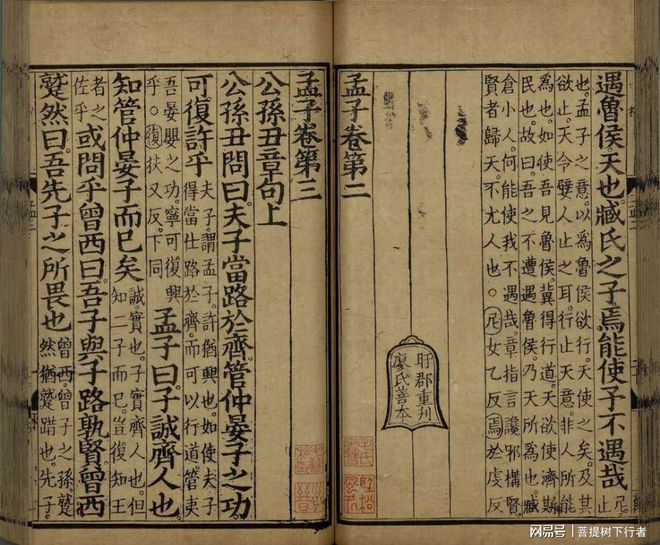 遇魯侯天也臧氏之子焉能使予不遇哉尼
也孟子之意以為魯侯欲行天使之矣及其
欲止天令嬖人止之耳行止天意非人所能
為也如使吾見魯侯冀得行道天欲使濟斯
民也故曰吾之不遭遇魯侯乃天所為也臧
倉小人何能使我不遇哉章指言讒邪構賢
賢者歸天不尤人也。尼女乙反焉於虔反
孟子卷第二
盱郡重刊
廖氏善本
孟子卷第三
公孫丑章句上
公孫丑問曰夫子當路於齊管仲晏子之功
可復許乎夫子謂孟子許猶興也如使夫子得當仕路於齊而可以行道管夷
吾晏嬰之功寧可復興乎。復扶又反下同孟子曰子誠齊人也
知管仲晏子而已矣誠實也子實齊人也但知二子而已豈復知王
者之佐乎或問乎曾西曰吾子與子路孰賢曾西
蹵然曰吾先子之所畏也曾西曾子之孫蹵然猶蹵踖也先子
网易号 | 菩提树下行者